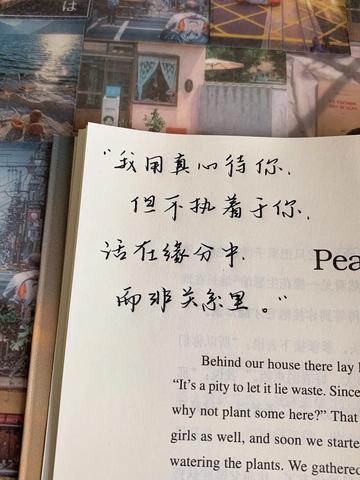 “我用真心待你，
但不执着于你，
活在缘分中，
而非关系里。”
Pea
Behind our house there lay
“It’s a pity to let it lie waste. Since
why not plant some here?” That
girls as well, and soon we starte
watering the plants. We gathered